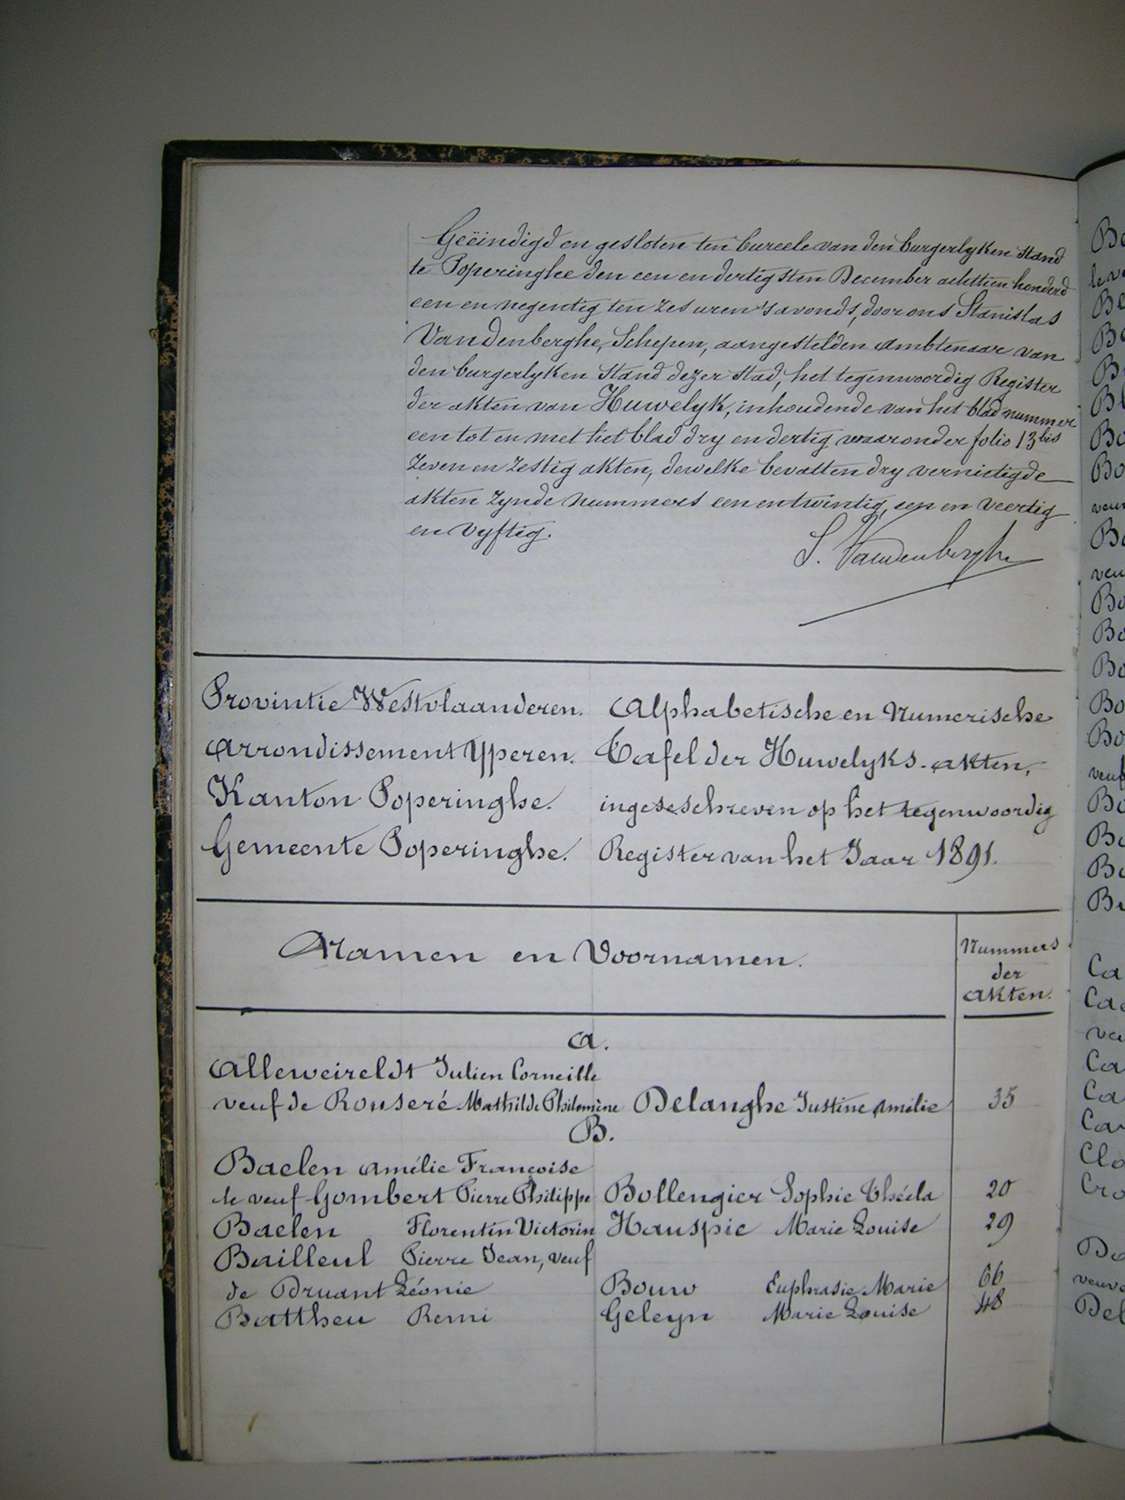 Geëindigd en gesloten ten bureele van den burgerlyken stand
te Poperinghe den een en dertigsten December achttien honderd
een en negentig ten zes uren 's avonds, door ons Stanislas
Vandenberghe, Schepen, aangestelden Ambtenaar van
den burgerlyken stand dezer stad, het tegenwoordig Register
der akten van Huwelyk, inhoudende van het blad nummer
een tot en met het blad dry en dertig waaronder folio 13bis
zeven en zestig akten, dewelke bevatten dry vernietigde
akten zynde nummers een en twintig, een en veertig
en vyftig.
S. Vandenberghe
Provintie Westvlaanderen. Alphabetische en Numerische
Arrondissement Yperen. Tafel der Huwelyks-akten,
Kanton Poperinghe. ingeschreven op het tegenwoordig
Gemeente Poperinghe. Register van het Jaar 1891.
Namen en Voornamen. Nummers
der
akten.
A.
Alleweireldt Julien Corneille
veuf de Rouseré Mathilde Philomène Delanghe Justine Amélie 35
B.
Baelen Amélie Françoise
le veuf Gombert Pierre Philippe Bollengier Sophie Thécla 20
Baelen Florentin Victorin Hauspie Marie Louise 29
Bailleul Pierre Jean, veuf
de Druant Léonie Bouw Euphrasie Marie 66
Battheu Remi Geleyn Marie Louise 48